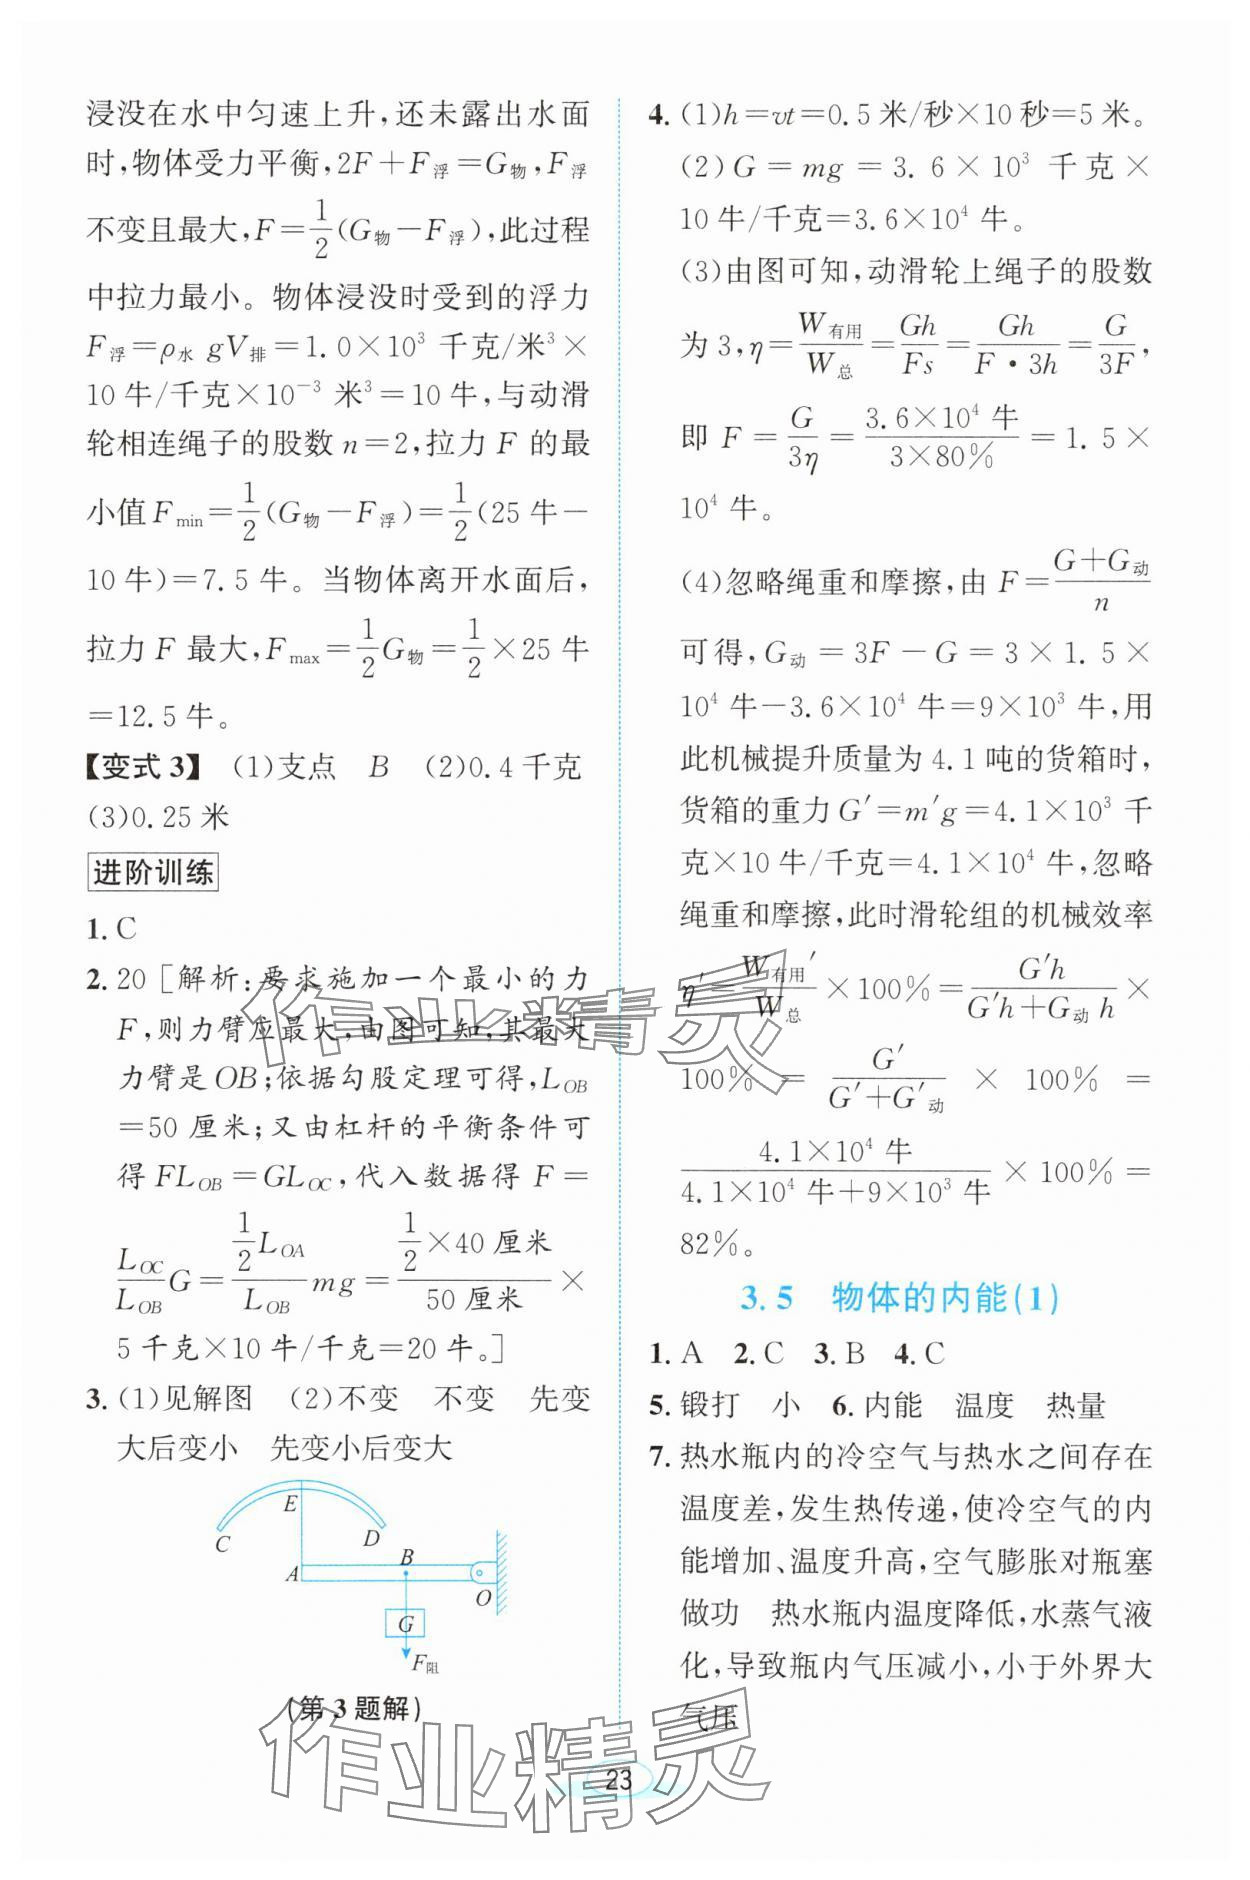 浸没在水中匀速上升,还未露出水面
时,物体受力平衡,2F+F浮=G物,F浮
不变且最大,F=1/2(G物-F浮),此过程
中拉力最小。物体浸没时受到的浮力
F浮=ρ水 gV排=1.0×10³ 千克/米³×
10牛/千克×10⁻³ 米³=10牛,与动滑
轮相连绳子的股数 n=2,拉力 F 的最
小值 Fmin=1/2(G物-F浮)=1/2(25 牛-
10牛)=7.5牛。当物体离开水面后,
拉力 F 最大,Fmax=1/2G物=1/2×25 牛
=12.5牛。
【变式3】 (1)支点 B (2)0.4千克
(3)0.25米
进阶训练
1. C
2. 20 [解析:要求施加一个最小的力
F,则力臂应最大,由图可知,其最大
力臂是OB;依据勾股定理可得,L_OB
=50厘米;又由杠杆的平衡条件可
得 FL_OB=GL_OC,代入数据得 F=
L_OC/L_OB G=(1/2 L_OA)/L_OB mg=(1/2×40厘米)/(50厘米)×
5千克×10牛/千克=20牛。]
3. (1)见解图 (2)不变 不变 先变
大后变小 先变小后变大
E
C
D
B
A
O
G
F阻
(第3题解)
4. (1)h=vt=0.5米/秒×10秒=5米。
(2)G=mg=3.6×10³ 千克×
10牛/千克=3.6×10⁴ 牛。
(3)由图可知,动滑轮上绳子的股数
为3,η=W有用/W总=Gh/Fs=Gh/(F·3h)=G/3F,
即 F=G/3η=(3.6×10⁴ 牛)/(3×80%)=1.5×
10⁴ 牛。
(4)忽略绳重和摩擦,由 F=(G+G动)/n
可得,G动=3F-G=3×1.5×
10⁴ 牛-3.6×10⁴ 牛=9×10³ 牛,用
此机械提升质量为4.1吨的货箱时,
货箱的重力G′=m′g=4.1×10³ 千
克×10牛/千克=4.1×10⁴ 牛,忽略
绳重和摩擦,此时滑轮组的机械效率
η′=W有用′/W总×100%=G′h/(G′h+G动 h)×
100%=G′/(G′+G′动)×100%=
(4.1×10⁴ 牛)/(4.1×10⁴ 牛+9×10³ 牛)×100%=
82%。
3.5 物体的内能(1)
1. A 2. C 3. B 4. C
5. 锻打 小 6. 内能 温度 热量
7. 热水瓶内的冷空气与热水之间存在
温度差,发生热传递,使冷空气的内
能增加、温度升高,空气膨胀对瓶塞
做功 热水瓶内温度降低,水蒸气液
化,导致瓶内气压减小,小于外界大
气压
23
作业精灵
作业精灵